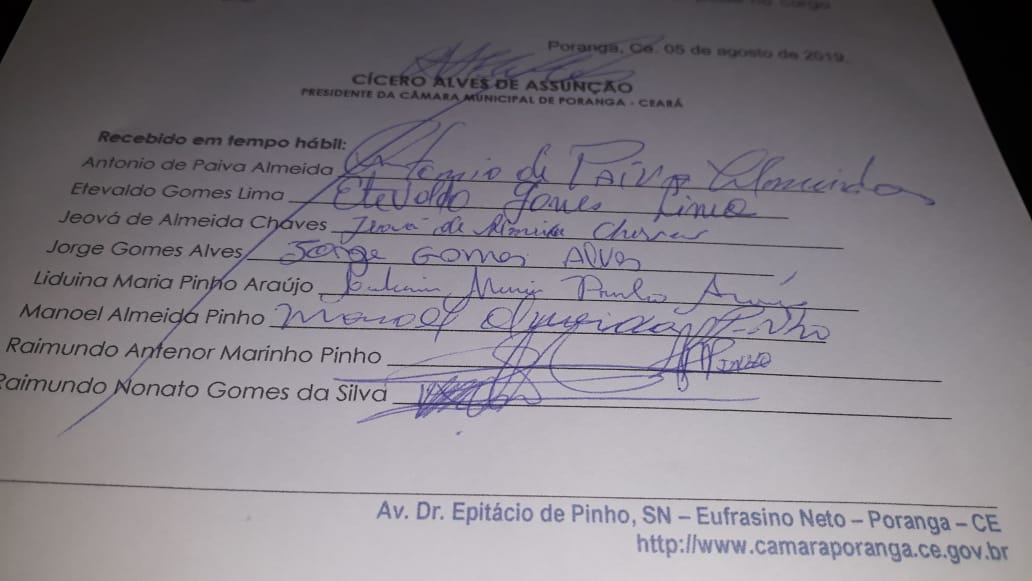 Poranga, Ce, 05 de agosto de 2019.
CÍCERO ALVES DE ASSUNÇÃO
PRESIDENTE DA CÂMARA MUNICIPAL DE PORANGA - CEARÁ
Recebido em tempo hábil:
Antonio de Paiva Almeida Antonio de PAIVA Almeida
Etevaldo Gomes Lima Etevaldo Gomes Lima
Jeová de Almeida Chaves Jeová de Almeida Chaves
Jorge Gomes Alves Jorge Gomes Alves
Liduina Maria Pinho Araújo Maria Pinho
Manoel Almeida Pinho Manoel Almeida Pinho
Raimundo Antenor Marinho Pinho Pinho
Raimundo Nonato Gomes da Silva
Av. Dr. Epitácio de Pinho, SN – Eufrasino Neto – Poranga – CE
http://www.camaraporanga.ce.gov.br